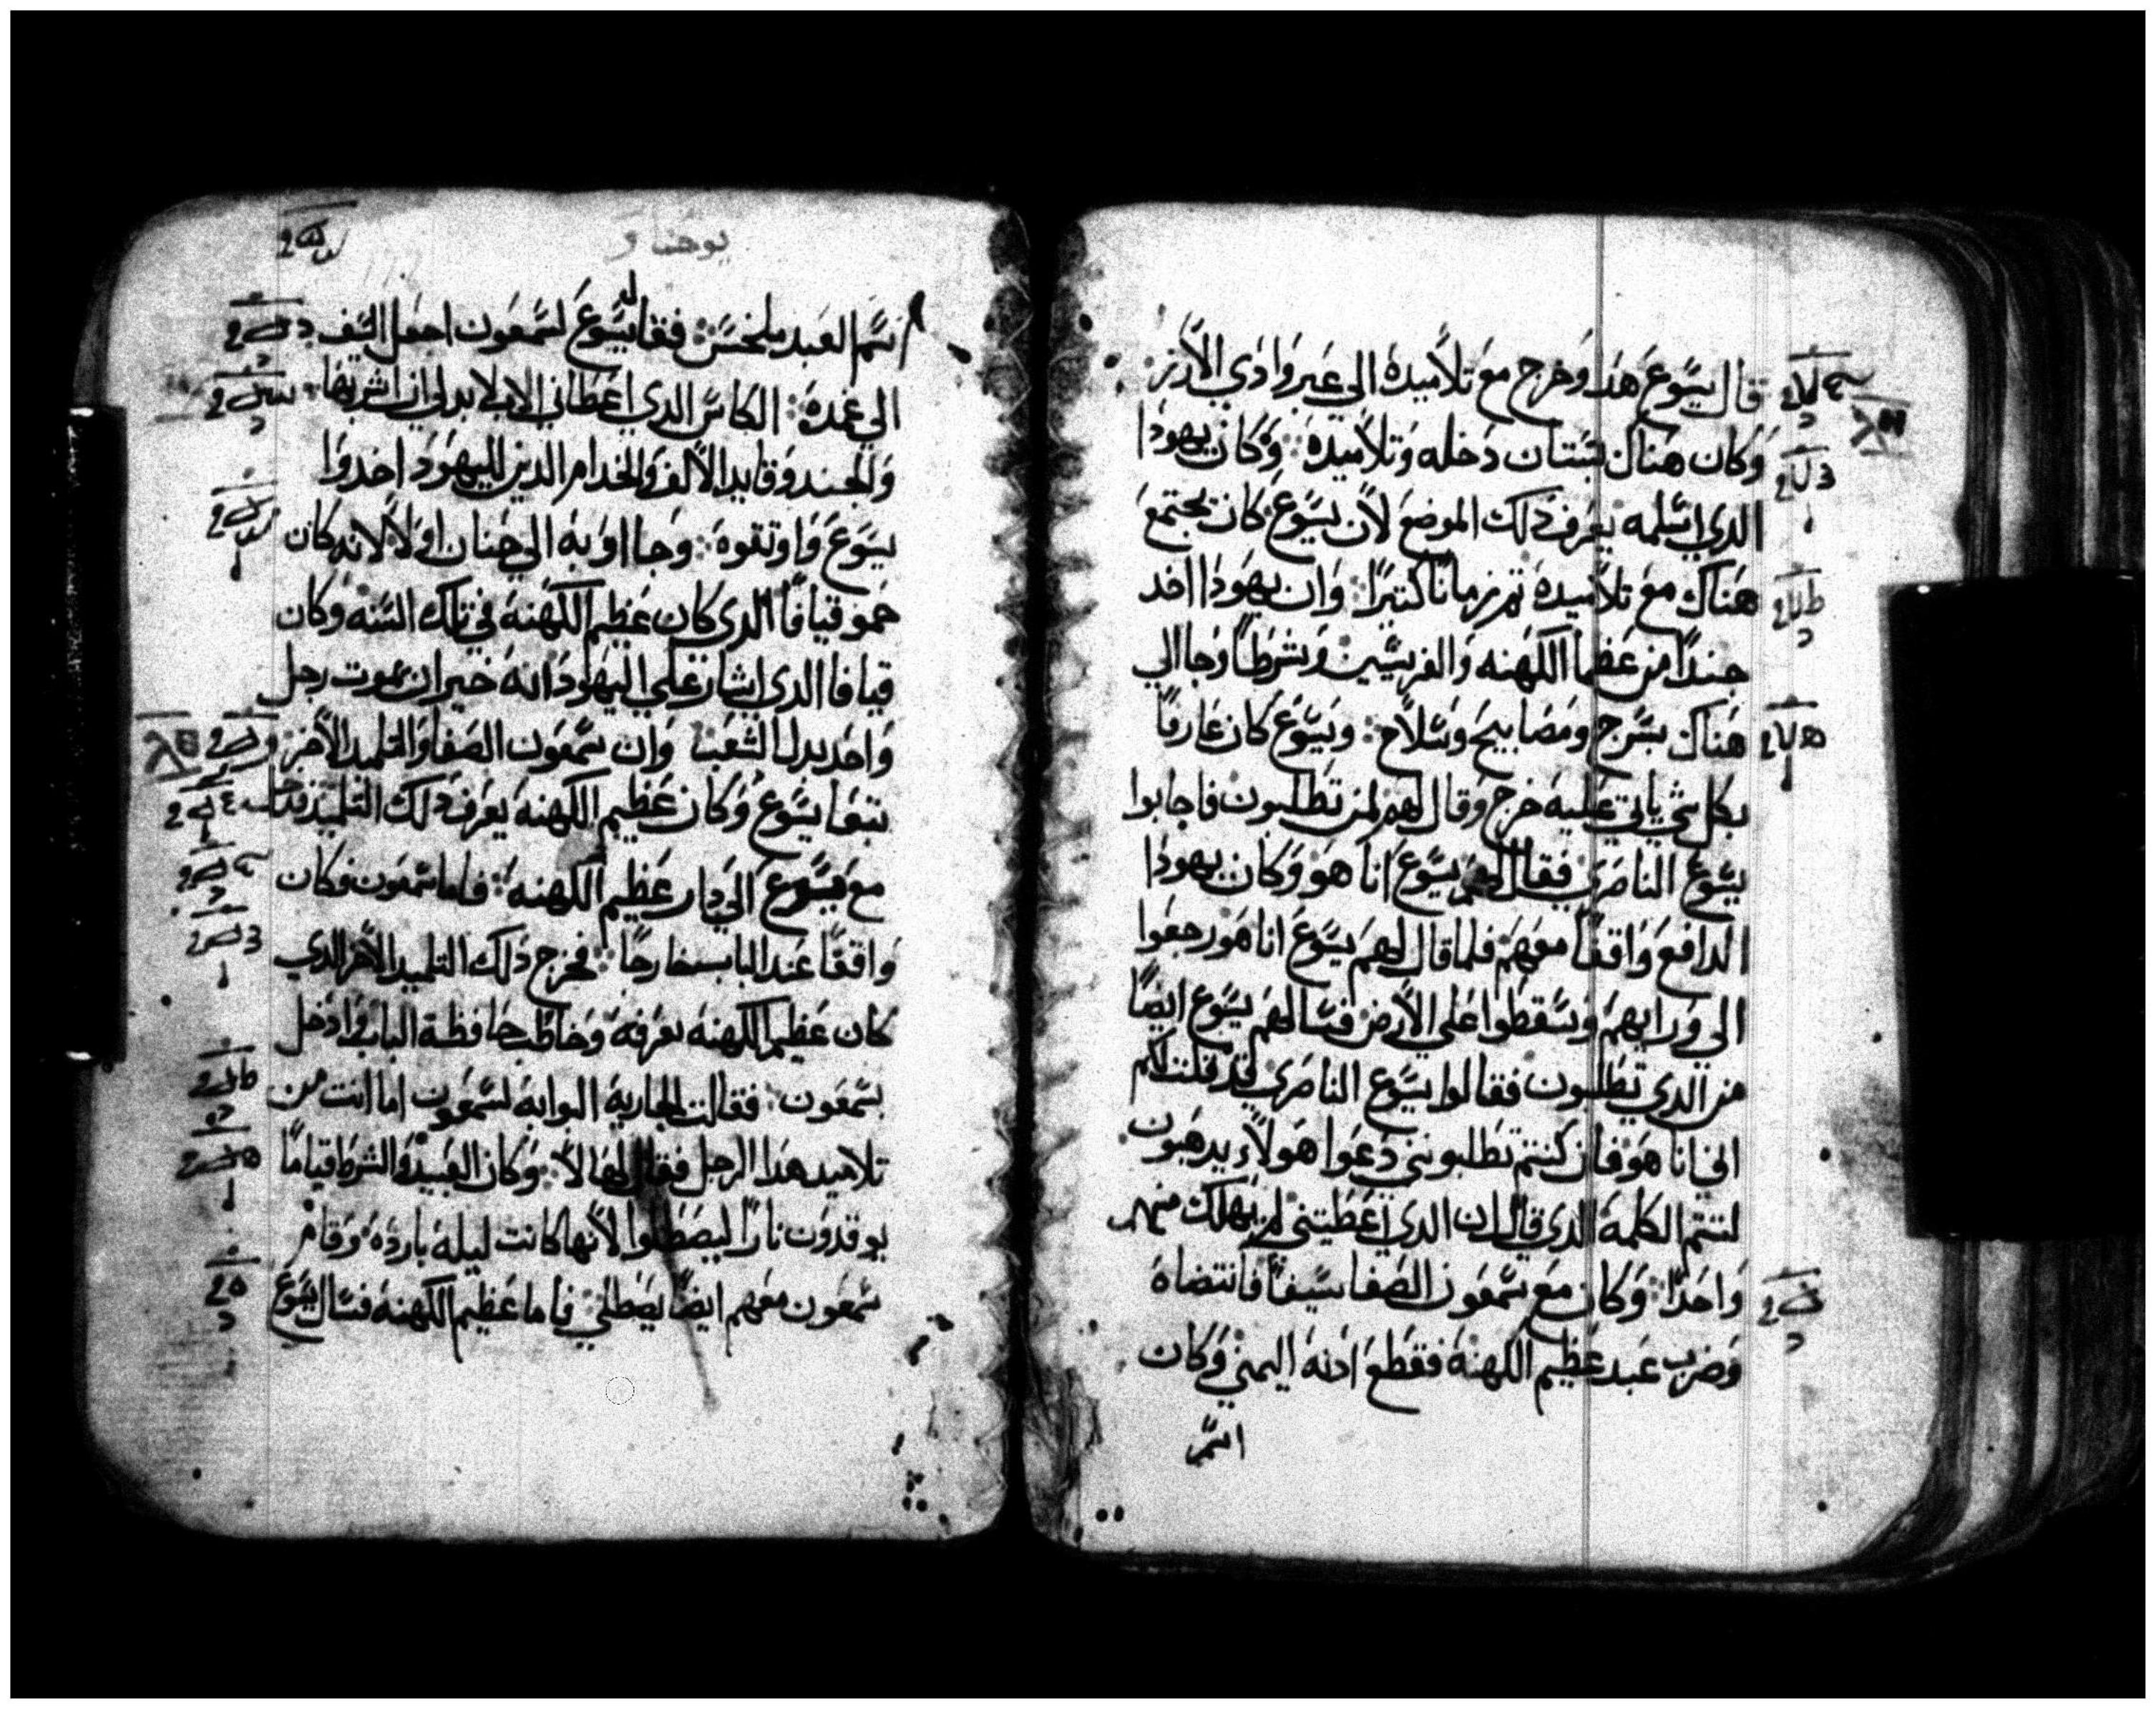 قال يسوع هدا وخرج مع تلاميده الي عبر وادي الأرز
وكان هناك بستان دخله وتلاميده وكان يهودا
الدي اسلمه يعرف دلك الموضع لأن يسوع كان يجتمع
هناك مع تلاميده تم زمانًا كتيرًا وان يهودا اخد
جندًا من عظما الكهنه والفريسين وشرطًا وجا الي
هناك بسرج ومصابيح وسلاح ويسوع كان عارفًا
بكل شي ياتي عليه خرج وقال لهم لمن تطلبون فاجابوا
يسوع الناصري فقال لهم يسوع انا هو وكان يهودا
الدافع واقفًا معهم فلما قال لهم يسوع انا هو رجعوا
الي ورايهم وسقطوا علي الأرض فسالهم يسوع ايضًا
من الدي تطلبون فقالوا يسوع الناصري قد قلت لكم
اني انا هو فان كنتم تطلبونني دعوا هولاء يدهبون
لتتم الكلمه الدي قال ان الدي اعطيتني لم يهلك منهم
واحدًا وكان مع سمعون الصفا سيفًا فانتضاه
وضرب عبد عظيم الكهنه فقطع ادنه اليمني وكان
اسم
يوحنا
اسم العبد ملخس فقال يسوع لسمعون اجعل السيف
الي غمده الكاس الدي اعطاني الاب لا بد لي ان اشربها
والجند وقايد الألف والخدام الدين لليهود اخدوا
يسوع واوتقوه وجااوا به الي حنان اولًا لانه كان
حمو قيافا الدي كان عظيم الكهنه في تلك السنه وكان
قيافا الدي اشار علي اليهود انه خير ان يموت رجل
واحد بدل الشعب وان سمعون الصفا والتلميد الأخر
تبعا يسوع وكان عظيم الكهنه يعرف دلك التلميد فدخل
مع يسوع الي دار عظيم الكهنه فاما سمعون فكان
واقفًا عند الباب خارجًا فخرج دلك التلميد الأخر الدي
كان عظيم الكهنه يعرفه وخاطب حافظة الباب وادخل
سمعون فقالت الجاريه البوابه لسمعون اما انت من
تلاميد هدا الرجل فقال لها لا وكان العبيد والشرط قيامًا
يوقدون نارًا ليصطلوا لأنها كانت ليله بارده وقام
سمعون معهم ايضًا يصطلي فاما عظيم الكهنه فسال يسوع